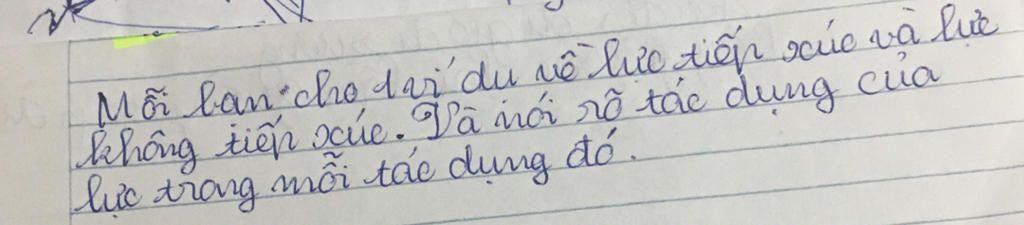 Mỗi bạn cho 1 ví dụ về lực tiếp xúc và lực
không tiếp xúc. Và nói rõ tác dụng của
lực trong mỗi tác dụng đó.